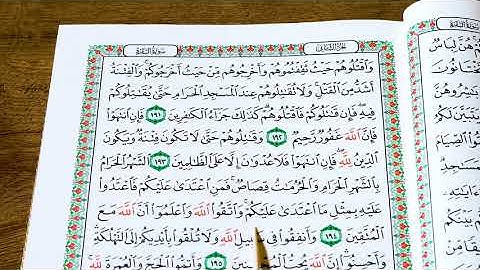 سورة البقرة
الجزء الثاني
سورة البقرة
وَاقْتُلُوهُمْ حَيْثُ ثَقِفْتُمُوهُمْ وَأَخْرِجُوهُم مِّنْ حَيْثُ أَخْرَجُوكُمْ وَالْفِتْنَةُ
أَشَدُّ مِنَ الْقَتْلِ وَلَا تُقَاتِلُوهُمْ عِندَ الْمَسْجِدِ الْحَرَامِ حَتَّىٰ يُقَاتِلُوكُمْ
فِيهِ فَإِن قَاتَلُوكُمْ فَاقْتُلُوهُمْ كَذَٰلِكَ جَزَاءُ الْكَافِرِينَ ١٩١ فَإِنِ انتَهَوْا
فَإِنَّ اللَّهَ غَفُورٌ رَّحِيمٌ ١٩٢ وَقَاتِلُوهُمْ حَتَّىٰ لَا تَكُونَ فِتْنَةٌ وَيَكُونَ
الدِّينُ لِلَّهِ فَإِنِ انتَهَوْا فَلَا عُدْوَانَ إِلَّا عَلَى الظَّالِمِينَ ١٩٣ الشَّهْرُ الْحَرَامُ
بِالشَّهْرِ الْحَرَامِ وَالْحُرُمَاتُ قِصَاصٌ فَمَنِ اعْتَدَىٰ عَلَيْكُمْ فَاعْتَدُوا
عَلَيْهِ بِمِثْلِ مَا اعْتَدَىٰ عَلَيْكُمْ وَاتَّقُوا اللَّهَ وَاعْلَمُوا أَنَّ اللَّهَ مَعَ
الْمُتَّقِينَ ١٩٤ وَأَنفِقُوا فِي سَبِيلِ اللَّهِ وَلَا تُلْقُوا بِأَيْدِيكُمْ إِلَى التَّهْلُكَةِ
وَأَحْسِنُوا إِنَّ اللَّهَ يُحِبُّ الْمُحْسِنِينَ ١٩٥ وَأَتِمُّوا الْحَجَّ وَالْعُمْرَةَ لِلَّهِ
هُنَّ لِبَاسٌ
تَخْتَانُونَ
بَاشِرُوهُنَّ
الصِّيَامَ